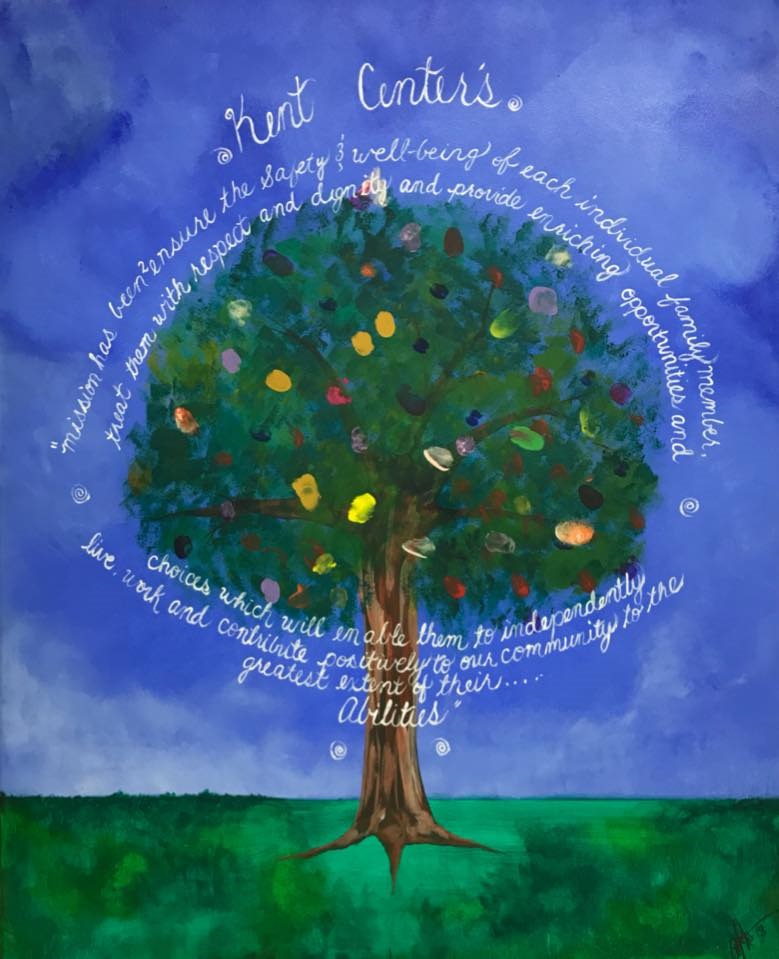 Kent Center's
"mission has been 2 ensure the Safety & well-being of each individual family member,
treat them with respect and dignity and provide enriching opportunities and
choices which will enable them to independently
live, work and contribute positively to our community to the
greatest extent of their.....
Abilities"